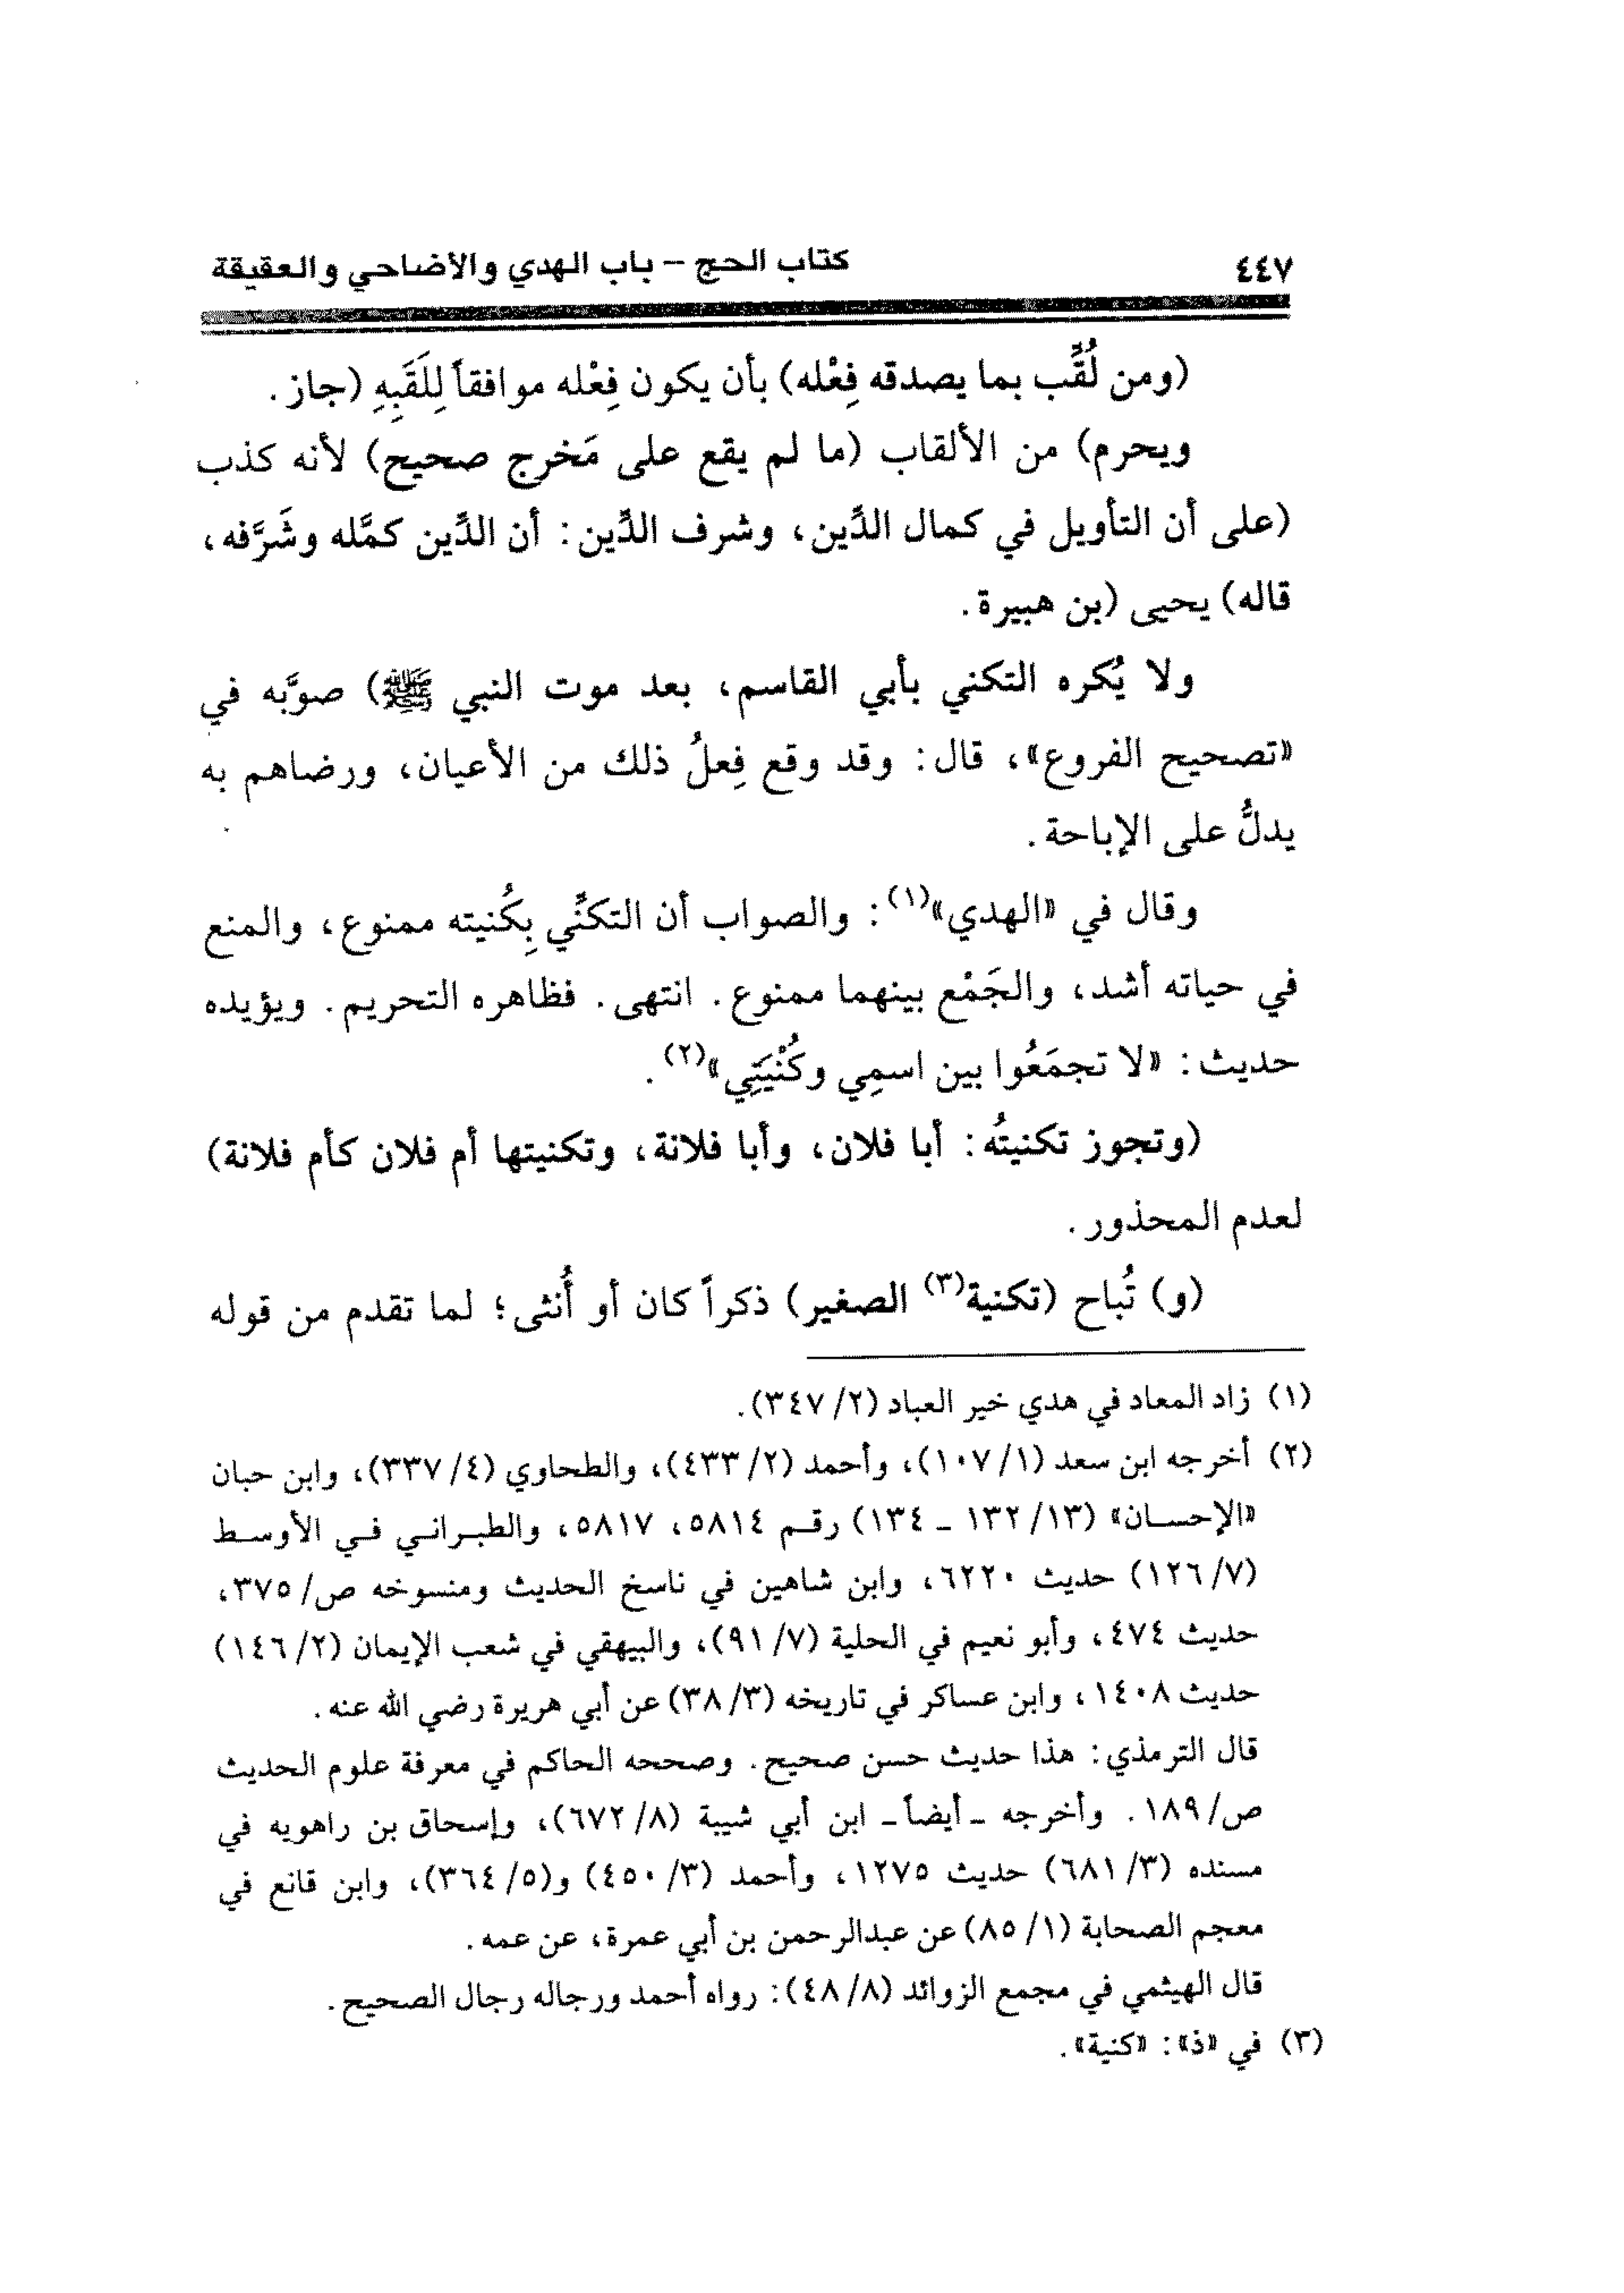 ٤٤٧ كتاب الحج – باب الهدي والأضاحي والعقيقة
(ومن لُقِّب بما يصدقه فِعْله) بأن يكون فِعْله موافقاً لِلَقَبِهِ (جاز.
ويحرم) من الألقاب (ما لم يقع على مَخرج صحيح) لأنه كذب
(على أن التأويل في كمال الدِّين، وشرف الدِّين: أن الدِّين كمَّله وشَرَّفه،
قاله) يحيى (بن هبيرة.
ولا يُكره التكني بأبي القاسم، بعد موت النبي ﷺ) صوَّبه في
«تصحيح الفروع»، قال: وقد وقع فِعلُ ذلك من الأعيان، ورضاهم به
يدلُّ على الإباحة.
وقال في «الهدي»(١): والصواب أن التكنِّي بِكُنيته ممنوع، والمنع
في حياته أشد، والجَمْع بينهما ممنوع. انتهى. فظاهره التحريم. ويؤيده
حديث: «لا تجمَعُوا بين اسمِي وكُنْيَتِي»(٢).
(وتجوز تكنيتُه: أبا فلان، وأبا فلانة، وتكنيتها أم فلان كأم فلانة)
لعدم المحذور.
(و) تُباح (تكنية(٣) الصغير) ذكراً كان أو أُنثى؛ لما تقدم من قوله
(١) زاد المعاد في هدي خير العباد (٢/ ٣٤٧).
(٢) أخرجه ابن سعد (١/ ١٠٧)، وأحمد (٢/ ٤٣٣)، والطحاوي (٤/ ٣٣٧)، وابن حبان
«الإحسان» (١٣/ ١٣٢ ـ ١٣٤) رقم ٥٨١٤، ٥٨١٧، والطبراني في الأوسط
(٧/ ١٢٦) حديث ٦٢٢٠، وابن شاهين في ناسخ الحديث ومنسوخه ص/ ٣٧٥،
حديث ٤٧٤، وأبو نعيم في الحلية (٧/ ٩١)، والبيهقي في شعب الإيمان (٢/ ١٤٦)
حديث ١٤٠٨، وابن عساكر في تاريخه (٣/ ٣٨) عن أبي هريرة رضي الله عنه.
قال الترمذي: هذا حديث حسن صحيح. وصححه الحاكم في معرفة علوم الحديث
ص/ ١٨٩. وأخرجه ـ أيضاً ـ ابن أبي شيبة (٨/ ٦٧٢)، وإسحاق بن راهويه في
مسنده (٣/ ٦٨١) حديث ١٢٧٥، وأحمد (٣/ ٤٥٠) و(٥/ ٣٦٤)، وابن قانع في
معجم الصحابة (١/ ٨٥) عن عبدالرحمن بن أبي عمرة، عن عمه.
قال الهيثمي في مجمع الزوائد (٨/ ٤٨): رواه أحمد ورجاله رجال الصحيح.
(٣) في «ذ»: «كنية».